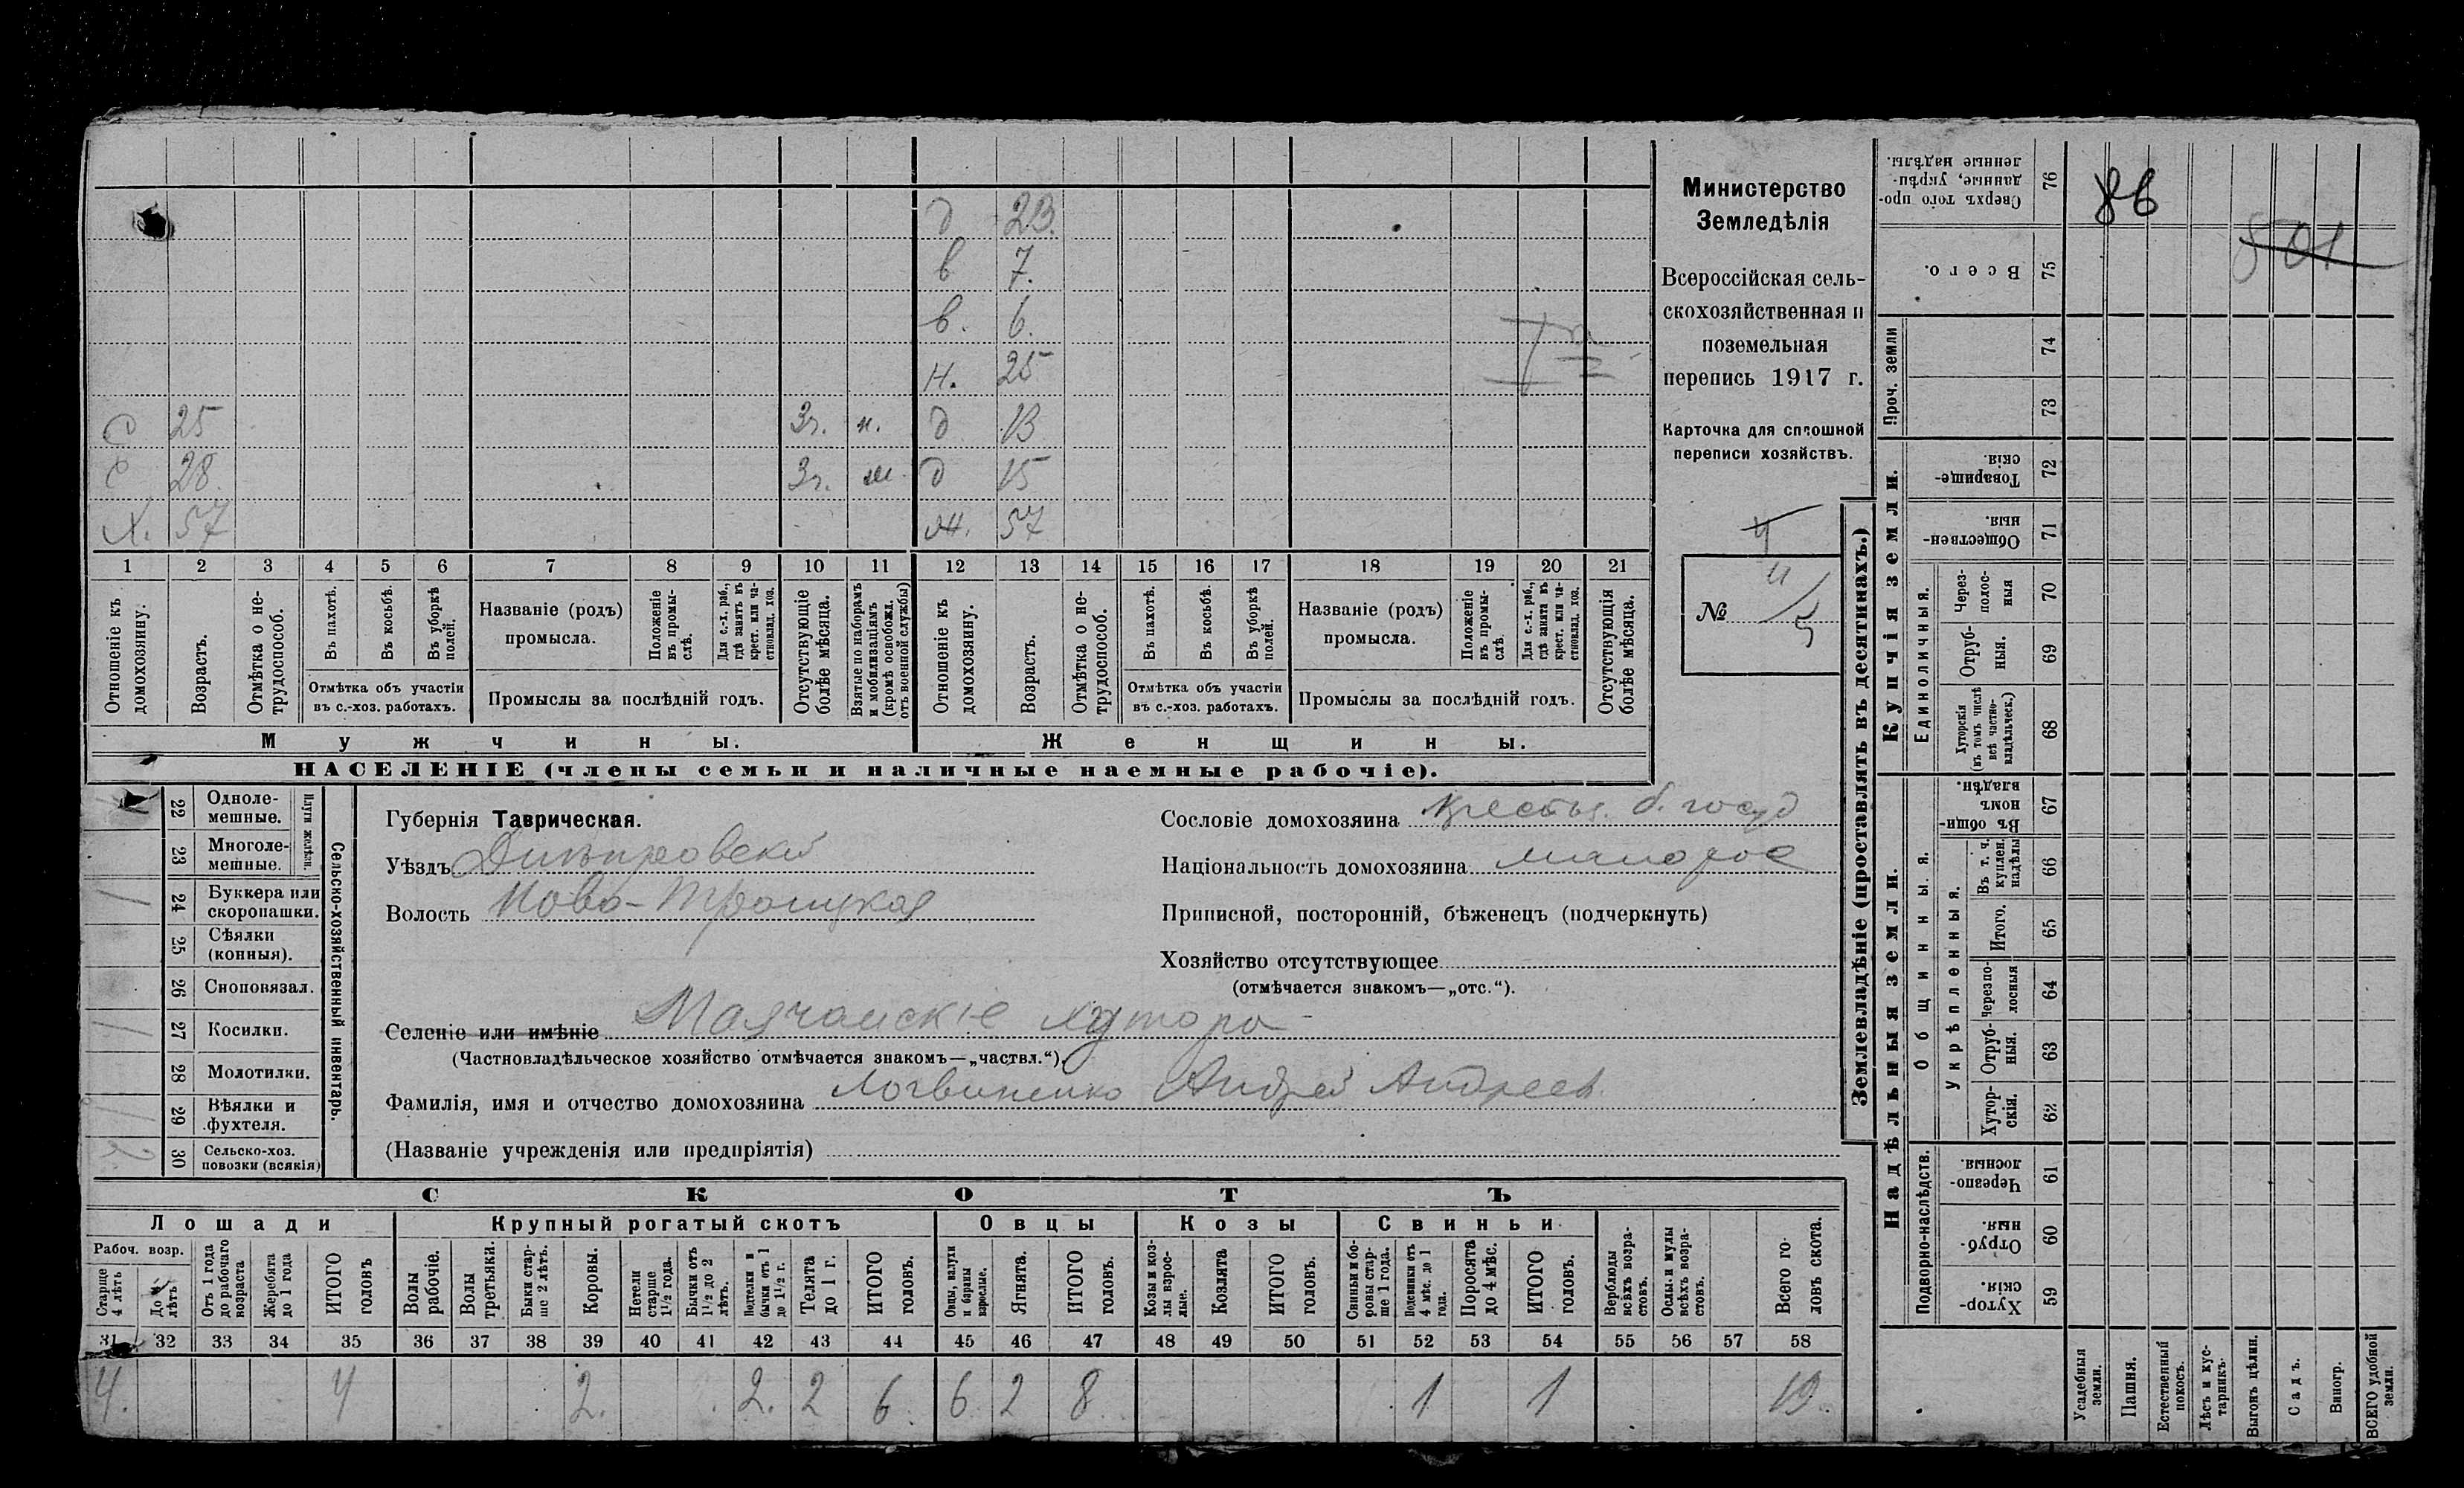 д 23.
в 7.
в. 6.
н. 25
С 25 3г. н. д 13
С 28. 3г. д 15
Х. 57 ж. 57
1 2 3 4 5 6 7 8 9 10 11 12 13 14 15 16 17 18 19 20 21
Отношеніе къ домохозяину.
Возрастъ.
Отмѣтка о не-трудоспособ.
Въ пахотѣ.
Въ косьбѣ.
Въ уборкѣ полей.
Отмѣтка объ участіи
въ с.-хоз. работахъ.
Названіе (родъ)
промысла.
Положеніе въ промы-слѣ.
Для с.-х. раб., гдѣ занятъ въ крест. или ча-стновлад. хоз.
Промыслы за послѣдній годъ.
Отсутствующіе болѣе мѣсяца.
Взятые по наборамъ и мобилизаціямъ (кромѣ освобожд. отъ военной службы)
Отношеніе къ домохозяину.
Возрастъ.
Отмѣтка о не-трудоспособ.
Въ пахотѣ.
Въ косьбѣ.
Въ уборкѣ полей.
Отмѣтка объ участіи
въ с.-хоз. работахъ.
Названіе (родъ)
промысла.
Положеніе въ промы-слѣ.
Для с.-х. раб., гдѣ занята въ крест. или ча-стновлад. хоз.
Промыслы за послѣдній годъ.
Отсутствующія болѣе мѣсяца.
Мужчины.
Женщины.
НАСЕЛЕНІЕ (члены семьи и наличные наемные рабочіе).
Министерство
Земледѣлія
Всероссійская сель-
скохозяйственная и
поземельная
перепись 1917 г.
Карточка для сплошной
переписи хозяйствъ.
№ 4/5
22 Одноле-мешные.
23 Многоле-мешные.
Плуги желѣзн.
24 Буккера или скоропашки.
25 Сѣялки (конныя).
26 Сноповязал.
27 Косилки.
28 Молотилки.
29 Вѣялки и фухтеля.
30 Сельско-хоз. повозки (всякія)
Сельско-хозяйственный инвентарь.
Губернія Таврическая.
Уѣздъ Днѣпровскій
Волость Ново-Троицкая
Селеніе или имѣніе Маячанскіе хутора
(Частновладѣльческое хозяйство отмѣчается знакомъ—„частвл.“).
Фамилія, имя и отчество домохозяина Логвиненко Андрей Андреев.
(Названіе учрежденія или предпріятія)
Сословіе домохозяина крестья. б. госуд
Національность домохозяина малорос
Приписной, посторонній, бѣженецъ (подчеркнуть)
Хозяйство отсутствующее
(отмѣчается знакомъ—„отс.“).
СКОТЪ
Лошади
Крупный рогатый скотъ
Овцы
Козы
Свиньи
Рабоч. возр.
Старше 4 лѣтъ
До 4 лѣтъ
Отъ 1 года до рабочаго возраста
Жеребята до 1 года
ИТОГО головъ
Волы рабочіе.
Волы третьяки.
Быки стар-ше 2 лѣтъ.
Коровы.
Нетели старше 1 1/2 года.
Бычки отъ 1 1/2 до 2 лѣтъ.
Подтелки и бычки отъ 1 до 1 1/2 г.
Телята до 1 г.
ИТОГО головъ.
Овцы, валухи и бараны взрослые.
Ягнята.
ИТОГО головъ.
Козы и коз-лы взрос-лые.
Козлята
ИТОГО головъ.
Свиньи и бо-ровы стар-ше 1 года.
Подсвинки отъ 4 мѣс. до 1 года.
Поросята до 4 мѣс.
ИТОГО головъ.
Верблюды всѣхъ возра-стовъ.
Ослы и мулы всѣхъ возра-стовъ.
Всего го-ловъ скота.
31 32 33 34 35 36 37 38 39 40 41 42 43 44 45 46 47 48 49 50 51 52 53 54 55 56 57 58
4. 4 2. 2. 2 6. 6 2 8 1 1 19.
Землевладѣніе (проставлять въ десятинахъ.)
Купчія земли.
Надѣльныя земли.
Проч. земли
Единоличныя.
Общинныя.
Укрѣпленныя.
Подворно-наслѣдств.
Сверхъ того про-данные, укрѣп-ленные надѣлы. 76 86
Всего. 75 501
74
73
Товарище-скія. 72
Обществен-ныя. 71
Через-полос-ныя 70
Отруб-ныя. 69
Хуторскія (въ томъ числѣ всѣ частно-владѣльческ.) 68
Въ общи-номъ владѣн. 67
Въ т. ч. куплен. надѣлы 66
Итого. 65
Черезпо-лосныя 64
Отруб-ныя. 63
Хутор-скія. 62
Черезпо-лосныя. 61
Отруб-ныя. 60
Хутор-скія. 59
Усадебныя земли.
Пашня.
Естественный покосъ.
Лѣсъ и кус-тарникъ.
Выгонъ цѣлин.
Садъ.
Виногр.
ВСЕГО удобной земли.